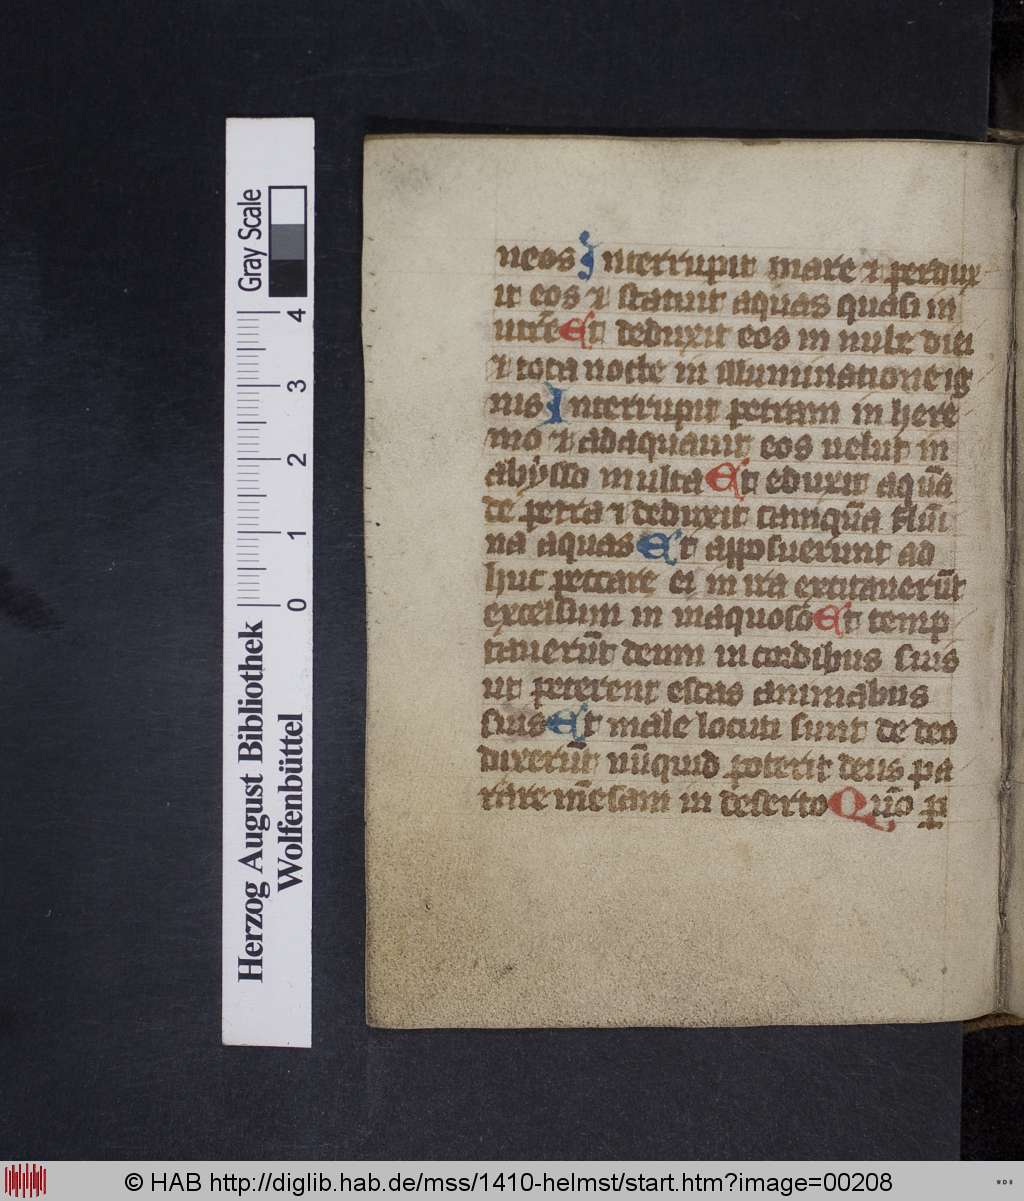 neos Interrupit mare ⁊ perdux
it eos ⁊ statuit aquas quasi in
utre Et deduxit eos in nube diei
⁊ tota nocte in illuminatione ig
nis Interrupit petram in here
mo ⁊ adaquauit eos uelut in
abysso multa Et eduxit aquā
de petra ⁊ deduxit tamquā flumī
na aquas Et apposuerunt ad
huc peccare ei in ira excitauerūt
excelsum in inaquoso Et temp
tauerūt deum in cordibus suis
ut peterent escas animabus
suis Et male locuti sunt de deo
dixerūt nūquid poterit deus pa
rare mēsam in deserto Qūo ꝑ
Gray Scale
4 3 2 1 0
Herzog August Bibliothek
Wolfenbüttel
© HAB http://diglib.hab.de/mss/1410-helmst/start.htm?image=00208